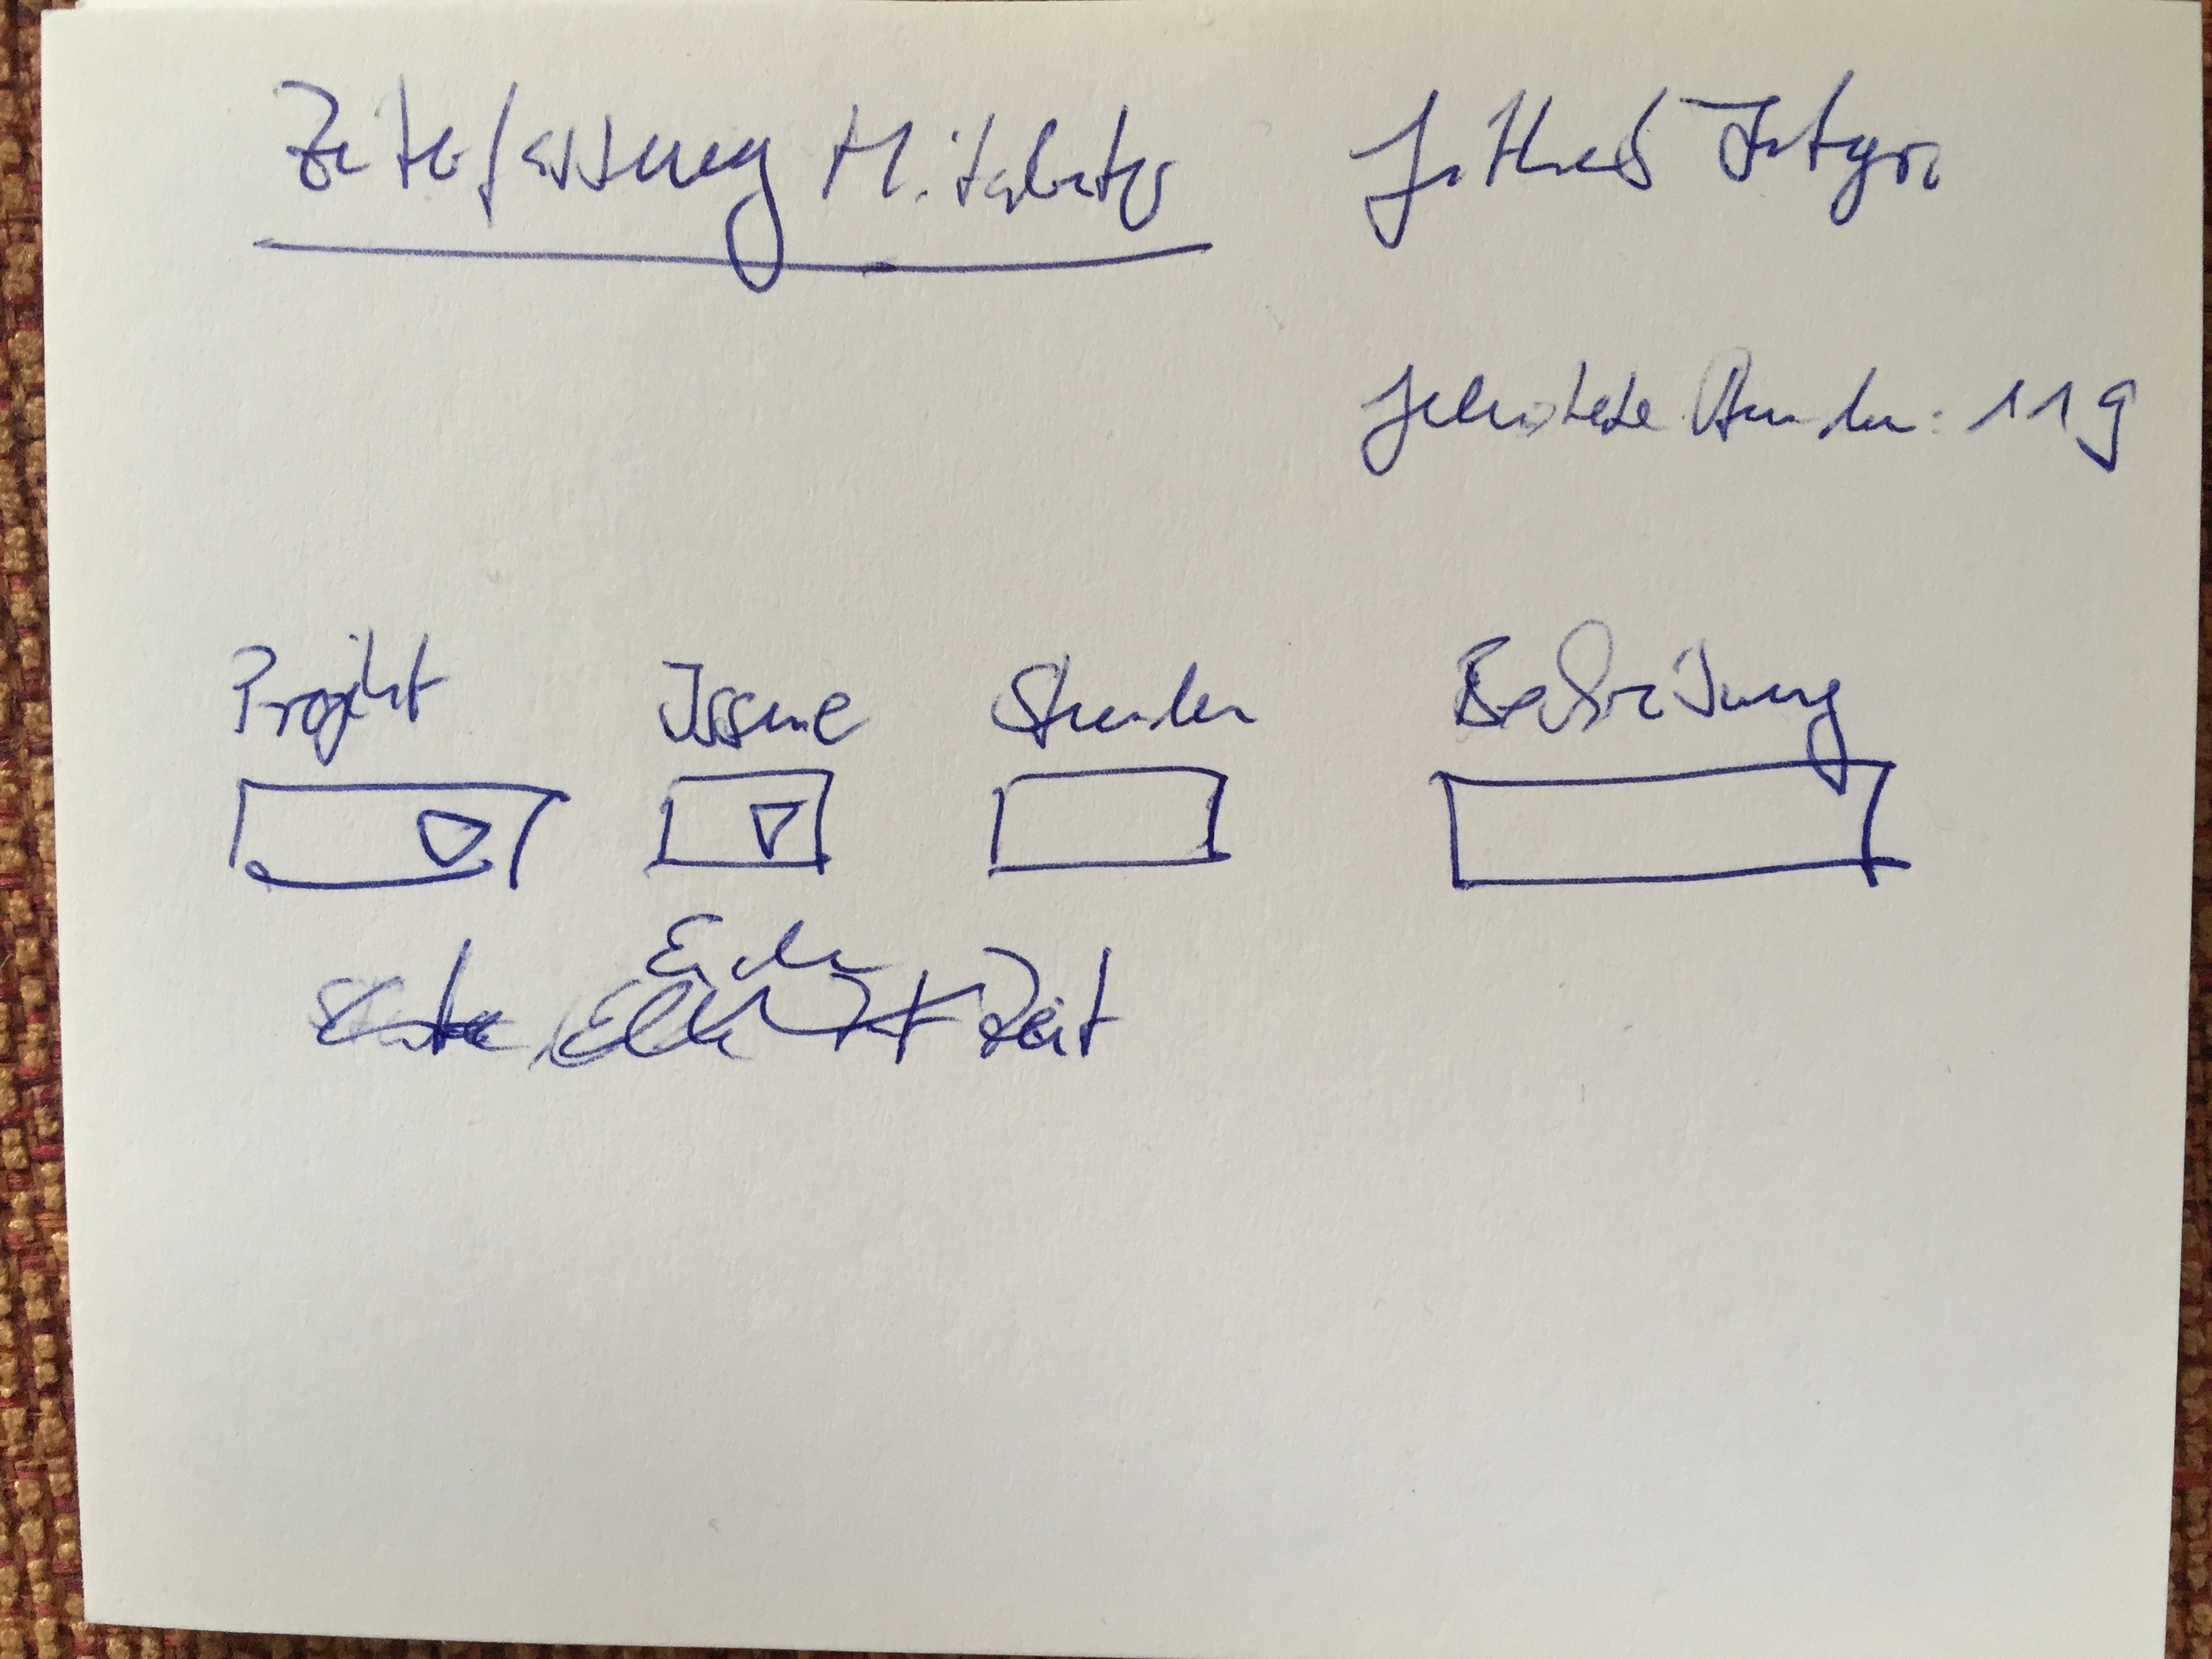 Zeiterfassung Mitarbeiter GitHub Integr.
geleistete Stunden: 119
Projekt Issue Stunden Beschreibung
Ende
Zeit